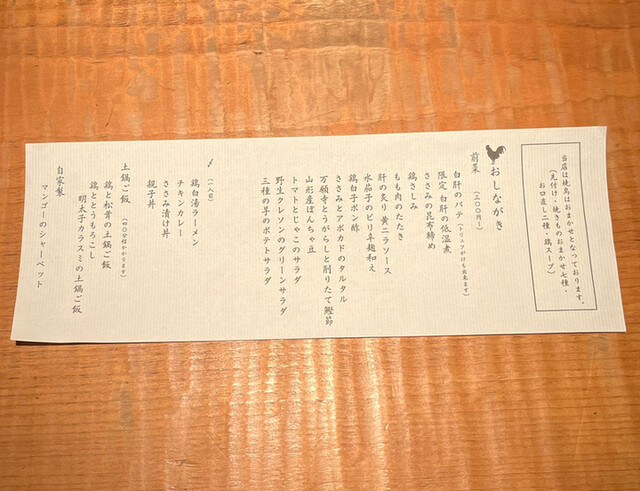 当店は焼鳥はおまかせとなっております。
(先付け・焼きものおまかせ七種・
お口直し二種・鶏スープ)
おしながき
前菜
(二〇〇円〜)
白肝のパテ(トリュフがけも出来ます)
限定 白肝の低温煮
ささみの昆布締め
鶏さしみ
もも肉のたたき
肝の炙り 黄ニラソース
水茄子のピリ辛麹和え
鶏白子ポン酢
ささみとアボカドのタルタル
万願寺とうがらしと削りたて鰹節
山形産ぽんちゃ豆
トマトとじゃこのサラダ
野生クレソンのグリーンサラダ
三種の芋のポテトサラダ
〆
(一人前)
鶏白湯ラーメン
チキンカレー
ささみ漬け丼
親子丼
土鍋ご飯
(40分位かかります)
鶏と松茸の土鍋ご飯
鶏ととうもろこし
明太子カラスミの土鍋ご飯
自家製
マンゴーのシャーベット